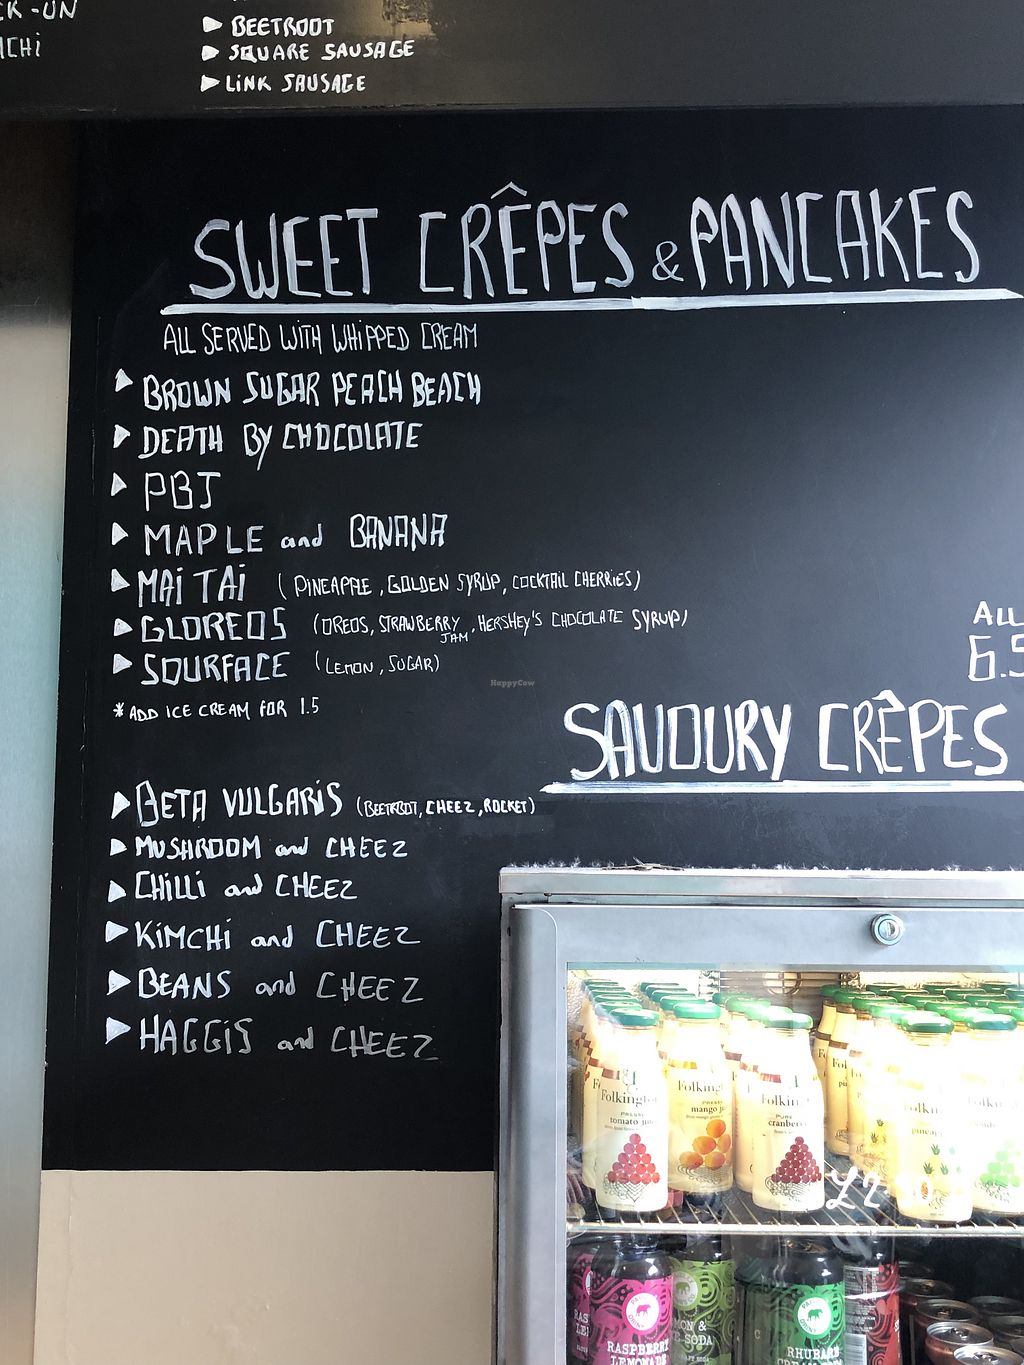 BEETROOT
SQUARE SAUSAGE
LINK SAUSAGE
SWEET CRÊPES & PANCAKES
ALL SERVED WITH WHIPPED CREAM
BROWN SUGAR PEACH BEACH
DEATH BY CHOCOLATE
PBJ
MAPLE and BANANA
MAI TAI (PINEAPPLE, GOLDEN SYRUP, COCKTAIL CHERRIES)
GLOREOS (OREOS, STRAWBERRY JAM, HERSHEY'S CHOCOLATE SYRUP)
SOURFACE (LEMON, SUGAR)
*ADD ICE CREAM FOR 1.5
ALL
6.5
HappyCow
SAVOURY CRÊPES
BETA VULGARIS (BEETROOT, CHEEZ, ROCKET)
MUSHROOM and CHEEZ
CHILLI and CHEEZ
KIMCHI and CHEEZ
BEANS and CHEEZ
HAGGIS and CHEEZ
Folkington
tomato
Folking
mango
Folkington
PURE
cranber
Folkin
pineapp
£2
RASPBERRY
LEMONADE
SODA
RHUBARB